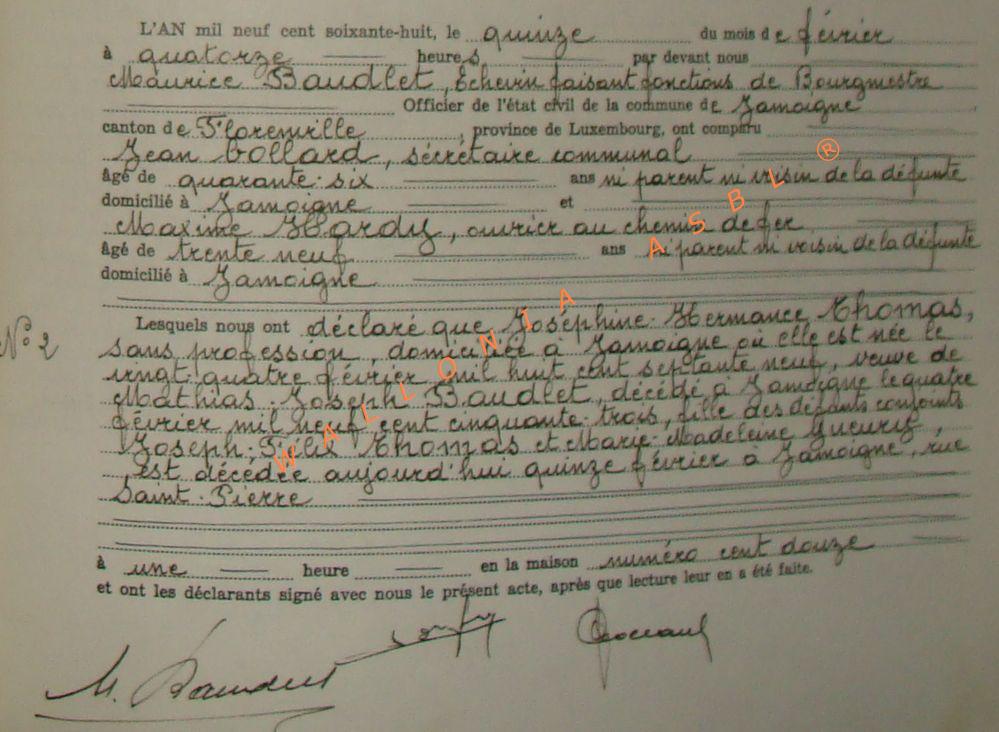 L'AN mil neuf cent soixante-huit, le quinze du mois de février
à quatorze heures par devant nous
Maurice Baudlet, Echevin faisant fonctions de Bourgmestre
Officier de l'état civil de la commune de Jamoigne
canton de Florenville, province de Luxembourg, ont comparu
Jean Collard, secrétaire communal
âgé de quarante-six ans ni parent ni voisin de la défunte
domicilié à Jamoigne et
Maxime Hardy, ouvrier au chemin de fer
âgé de trente neuf ans ni parent ni voisin de la défunte
domicilié à Jamoigne
N° 2
Lesquels nous ont déclaré que Joséphine-Hermance Thomas,
sans profession, domiciliée à Jamoigne où elle est née le
vingt-quatre février mil huit cent septante neuf, veuve de
Mathias-Joseph Baudlet, décédé à Jamoigne le quatre
février mil neuf cent cinquante-trois, fille des défunts conjoints
Joseph-Félix Thomas et Marie-Madeleine Gueury,
est décédée aujourd'hui quinze février à Jamoigne, rue
Saint-Pierre
à une heure en la maison numéro cent douze
et ont les déclarants signé avec nous le présent acte, après que lecture leur en a été faite.
M.
WALLONIA ASBL ®